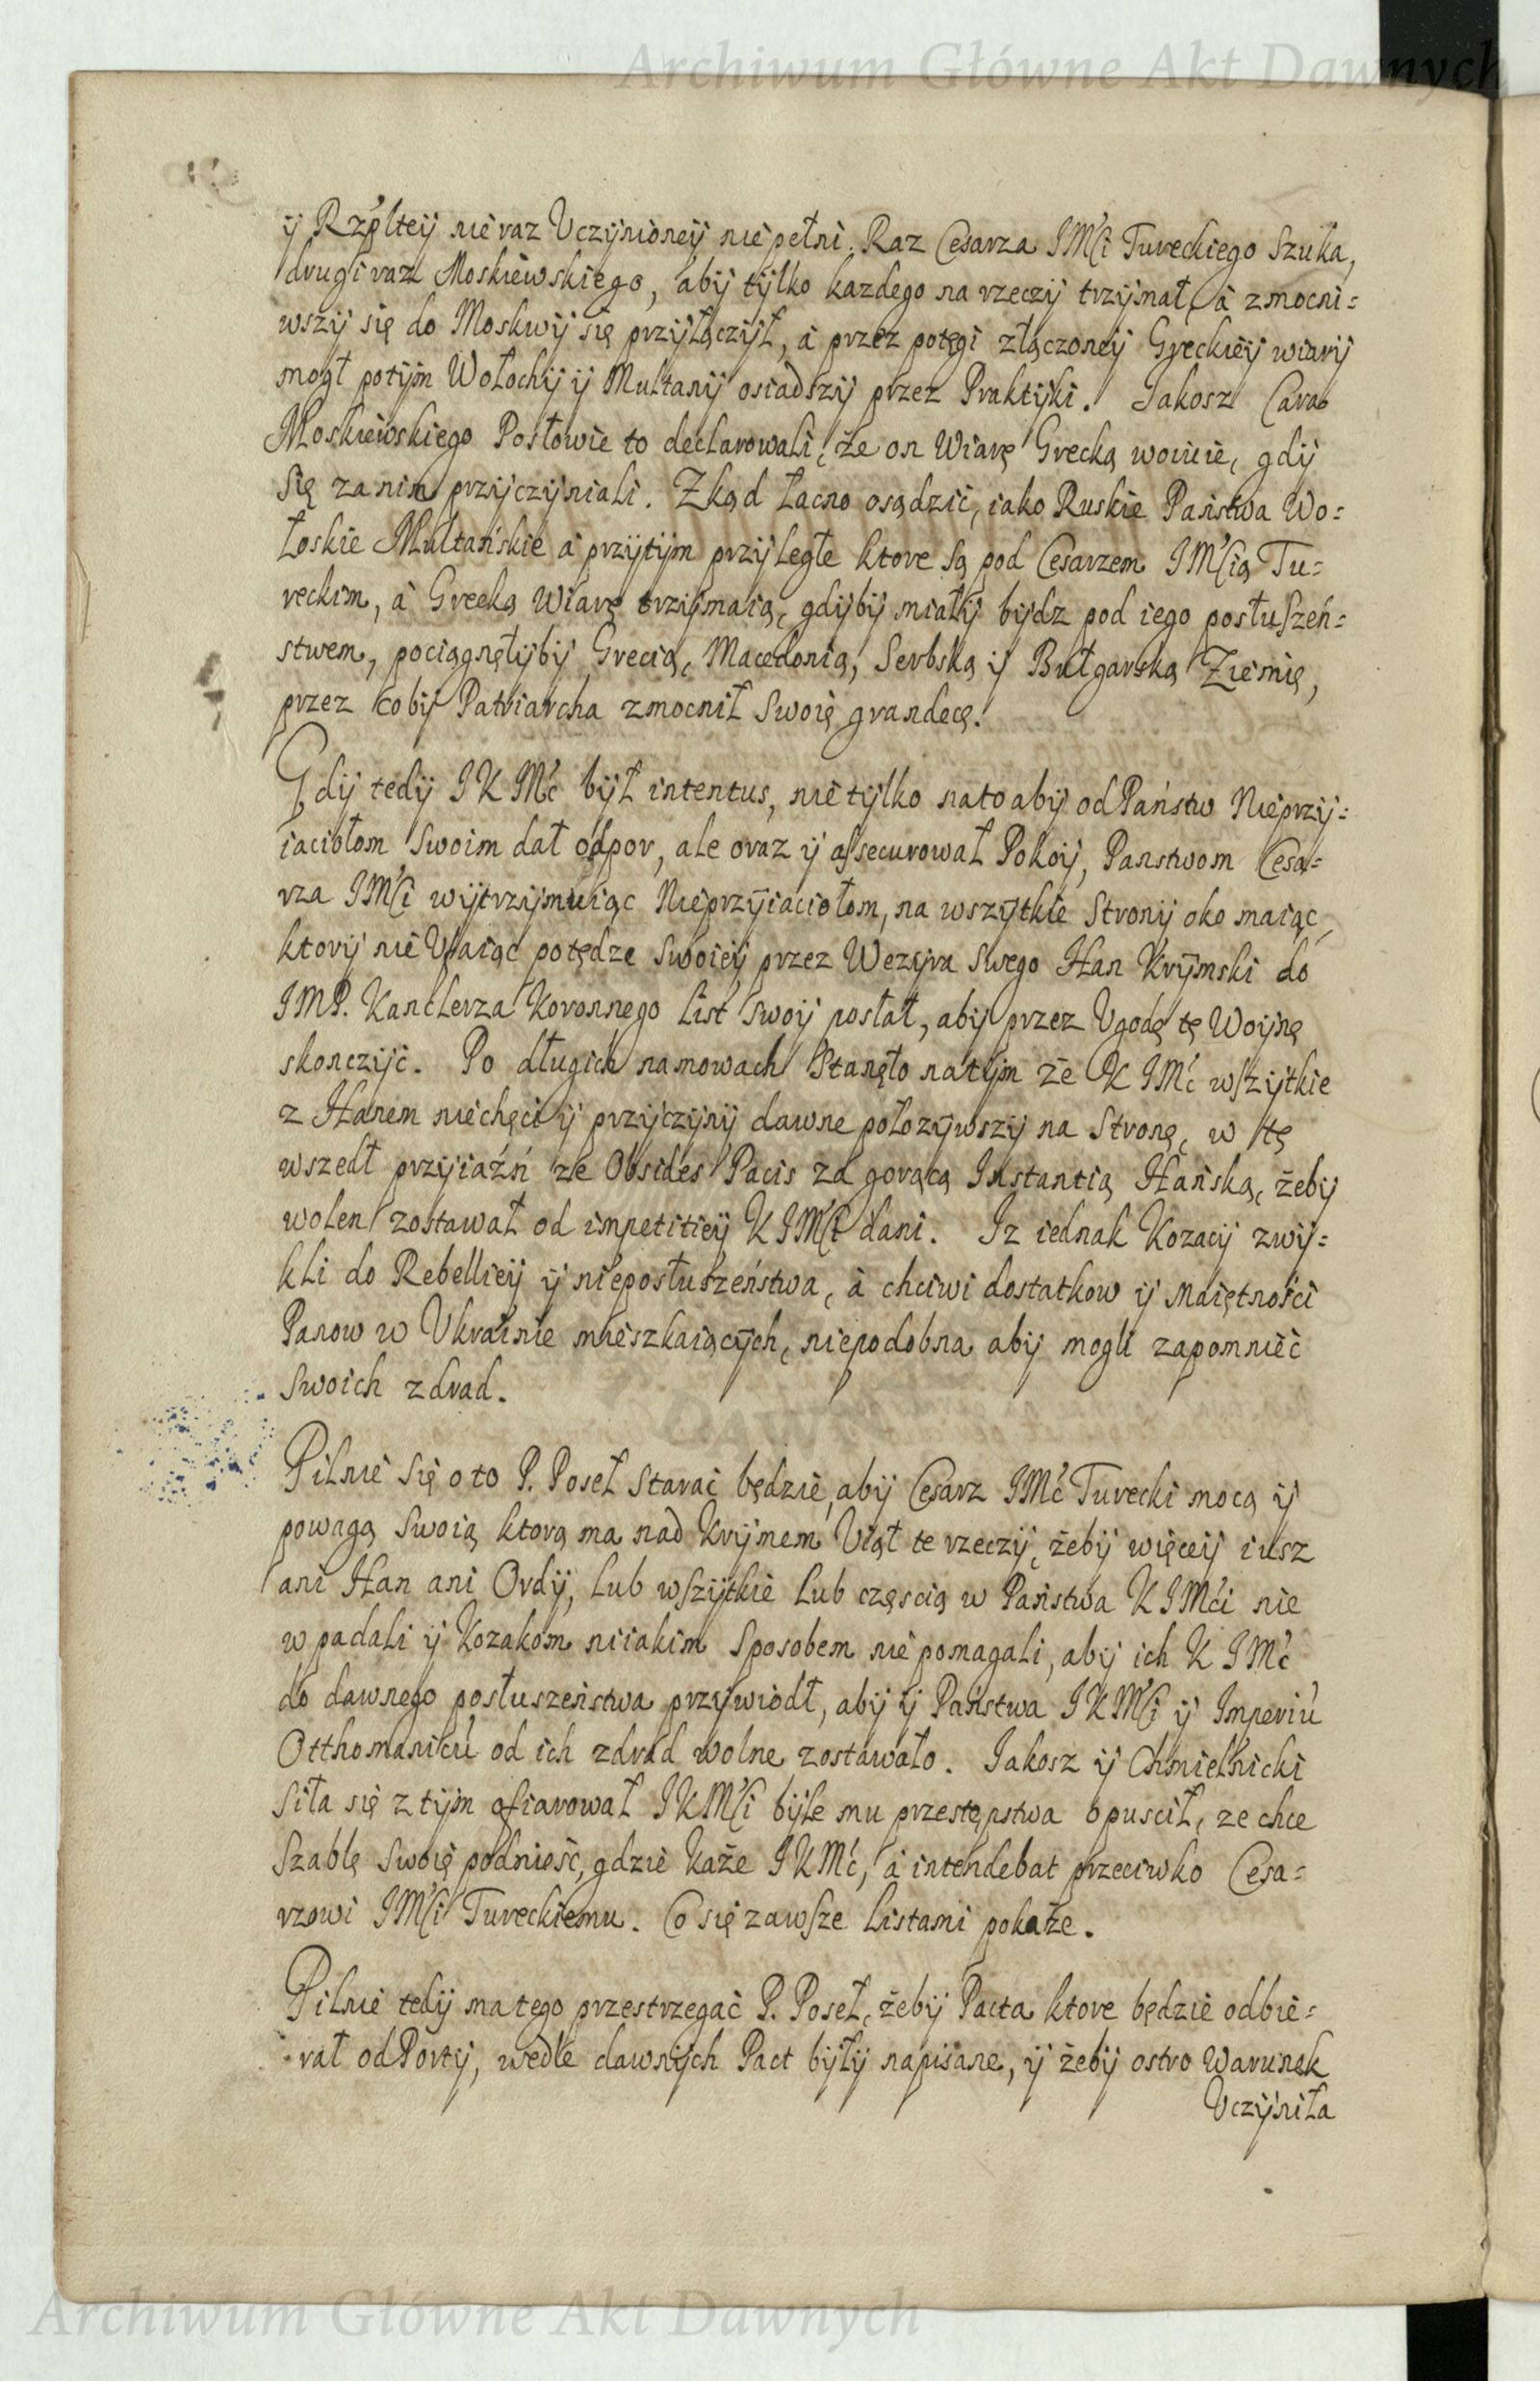 Archiwum Główne Akt Dawnych
ij Rzpltej nie raz Vczijnioneij nie pełni. Raz Cesarza JMści Tureckiego Szuka,
drugi raz Moskiewskiego, abij tijlko kazdego na rzeczij trzijmał, à zmocni=
wszij się do Moskwij się przijłączijł, à przez potęgi złączoneij Greckieij wiarij
mogł potijm Wołochij ij Multanij osiadszij przez Praktijki. Jakosz Cara
Moskiewskiego Posłowie to declarowali, że on Wiarę Grecką woiuie, gdij
się za nim przijczijniali. Zkąd łacno osądzić, iako Ruskie Państwa Wo=
łoskie Multańskie à przijtijm przijległe ktore są pod Cesarzem JMścią Tu=
reckim, à Grecką Wiarę trzijmaią, gdijbij miałij bijdz pod iego posłuszeń=
stwem, pociągnęłijbij Grecią, Macedonią, Serbską ij Bułgarską Ziemię,
przez cobij Patriarcha zmocnił Swoię grandecę.
Gdij tedij JKMć bijł intentus, nie tijlko na to abij od Państw Nieprzij=
iaciołom Swoim dał odpor, ale oraz ij assecurował Pokoij, Panstwom Cesa=
rza JMści wijtrzijmuiąc Nieprzijiaciołom, na wszijtkie Stronij oko maiąc,
ktorij nie Vfaiąc potędze Swoieij przez Wezijra Swego Han Krijmski do
JMP. Kanclerza Koronnego List Swoij posłał, abij przez Vgodę tę Woijnę
skonczijć. Po długich namowach Stanęło na tijm że K JMć wszijtkie
z Hanem niechęci ij przijczijnij dawne położijwszij na Stronę, w tę
wszedł przijiaźń ze Obsides Pacis za gorącą Instantią Hańską, żebij
wolen zostawał od impetitieij K JMści dani. Iz iednak Kozacij zwij=
kli do Rebellieij ij nieposłuszeństwa, à chciwi dostatkow ij maiętności
Panow w Vkrainie mieszkaiącijch, niepodobna abij mogli zapomnieć
Swoich zdrad.
Pilnie się o to P. Poseł starać będzie, abij Cesarz JMć Turecki mocą ij
powagą Swoią ktorą ma nad Krijmem Viął te rzeczij, żebij więceij iusz
ani Han ani Ordij, lub wszijtkie lub częscią w Państwa K JMći nie
wpadali ij Kozakom niiakim Sposobem nie pomagali, abij ich K JMć
do dawnego posłuszeństwa przijwiodł, abij ij Państwa JKMści ij Imperiũ
Otthomanicũ od ich zdrad wolne zostawało. Jakosz ij Chmielnicki
siła się z tijm ofiarował JKMści bijle mu przestępstwa opuscił, ze chce
Szablę Swoię podnieść, gdzie każe JKMć, à intendebat przeciwko Cesa=
rzowi JMści Tureckiemu. Co się zawsze Listami pokaże.
Pilnie tedij ma tego przestrzegać P. Poseł, żebij Pacta ktore będzie odbie=
rał od Portij, wedle dawnijch Pact bijłij napisane, ij żebij ostro Warunek
Vczijniła
Archiwum Główne Akt Dawnych